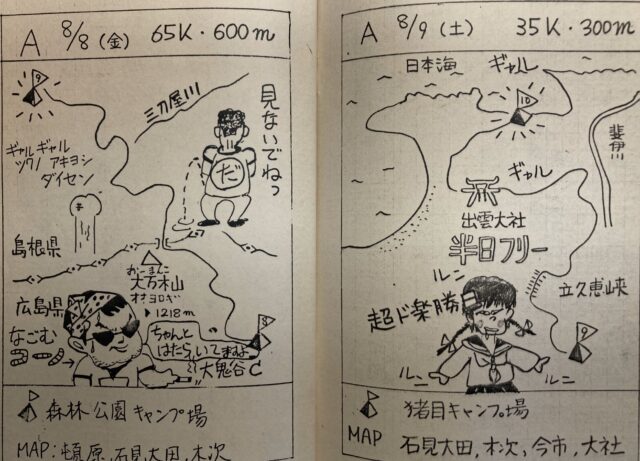 A 8/8 (金) 65K・600m
9
三刀屋川
見ないでねっ
ギャルギャル
ツクノ アキヨシ
ダイセン
だ
島根県
大万木山
オオヨロギ
1218m
広島県
なごむ
ちゃんと
はたらいてますよ
8
大鬼谷C
森林公園キャンプ場
MAP:頓原,石見大田,木次
A 8/9 (土) 35K・300m
日本海
ギャル
10
斐伊川
ギャル
出雲大社
半日フリー
ルン
超ド楽勝日
立久恵峡
9
ルン
ルン
猪目キャンプ場
MAP 石見大田,木次,今市,大社